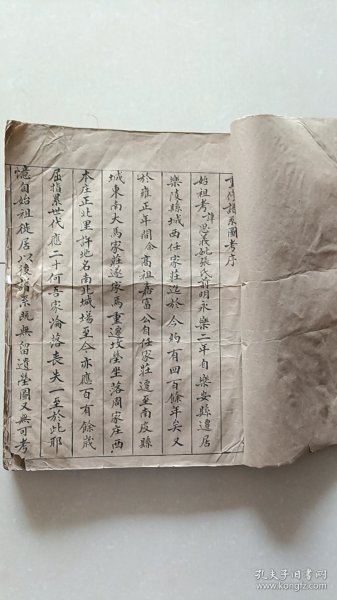 譜系圖考序
始祖考諱思義妣張氏前明永樂二年自樂安縣遷居
樂陵縣城西任家莊迄於今約有四百餘年矣又
於雍正年間合高祖嘉富公自任家莊遷至南皮縣
城東南大馬家莊遂家焉重遷坟塋坐落周家庄西
本庄正北里許地名南北城場至今亦應百有餘歲
屈指累世代應二十何吾家淪落丧失一至於此耶
憶自始祖徙居以後譜系既無留遺塋圖又無可考
孔夫子旧书网